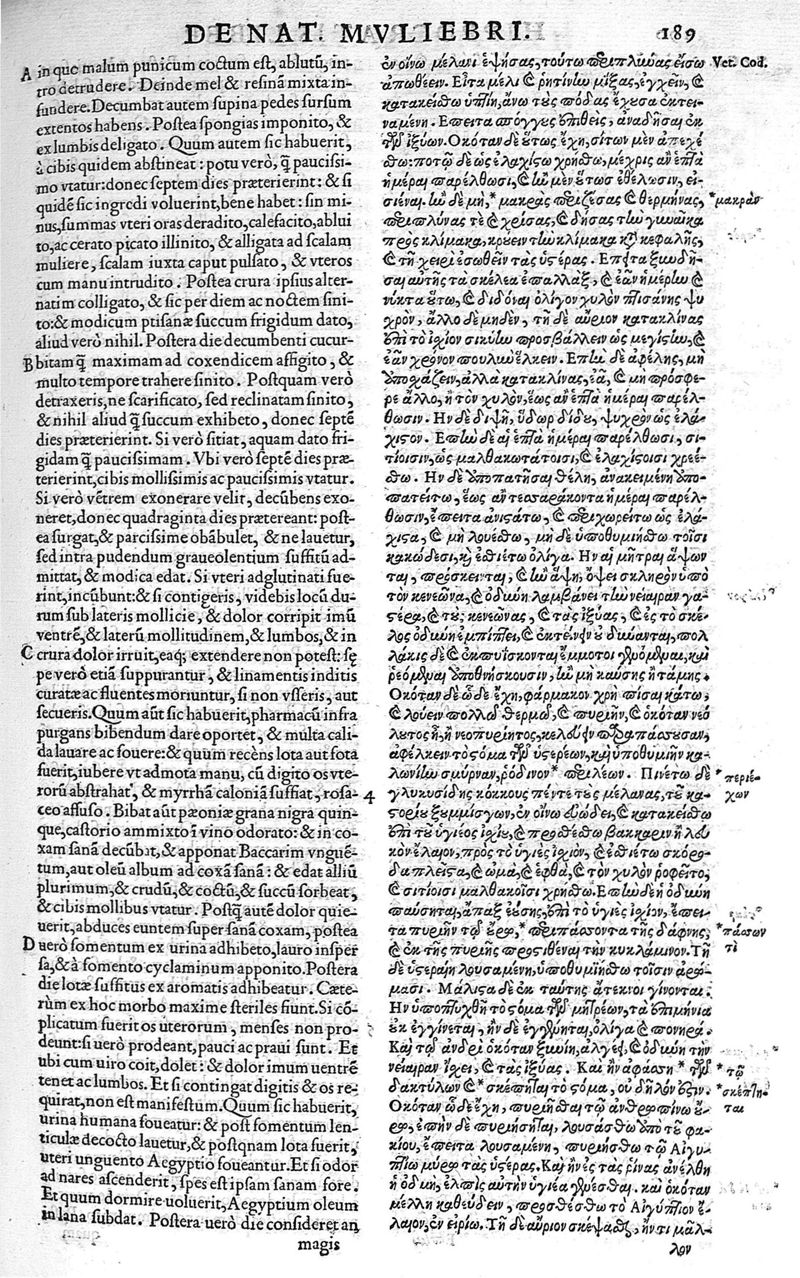 DE NAT. MVLIEBRI.
189
A in quo malum punicum coctum est, ablutũ, in-
tro detrudere. Deinde mel & resinã mixta in-
fundere. Decumbat autem supina pedes sursum
extentos habens. Postea spongias imponito, &
ex lumbis deligato. Quum autem sic habuerit,
à cibis quidem abstineat: potu verò, q̃ paucissi-
mo vtatur: donec septem dies præterierint: & si
quidẽ sic ingredi voluerint, bene habet: sin mi-
nus, summas vteri oras deradito, calefacito, ablui
to, ac cerato picato illinito, & alligata ad scalam
muliere, scalam iuxta caput pulsato, & vteros
cum manu intrudito. Postea crura ipsius alter-
natim colligato, & sic per diem ac noctem sini-
to: & modicum ptisanæ succum frigidum dato,
aliud verò nihil. Postera die decumbenti cucur-
B bitam q̃ maximam ad coxendicem affigito, &
multo tempore trahere sinito. Postquam verò
detraxeris, ne scarificato, sed reclinatam sinito,
& nihil aliud q̃ succum exhibeto, donec septẽ
dies præterierint. Si verò sitiat, aquam dato fri-
gidam q̃ paucissimam. Vbi verò septẽ dies præ-
terierint, cibis mollissimis ac paucissimis vtatur.
Si verò vẽtrem exonerare velit, decũbens exo-
neret, donec quadraginta dies prætereant: post-
ea surgat, & parcissime obãbulet, & ne lauetur,
sed intra pudendum graueolentium suffitũ ad-
mittat, & modica edat. Si vteri adglutinati fue-
rint, incũbunt: & si contigeris, videbis locũ du-
rum sub lateris mollicie, & dolor corripit imũ
ventrẽ, & laterũ mollitudinem, & lumbos, & in
C crura dolor irruit, eaq; extendere non potest: sę
pe verò etiã suppurantur, & linamentis inditis
curatæ ac fluentes moriuntur, si non vsseris, aut
secueris. Quum aũt sic habuerit, pharmacũ infra
purgans bibendum dare oportet, & multa cali-
da lauare ac fouere: & quum recẽns lota aut fota
fuerit, iubere vt admota manu, cũ digito os vte-
rorũ abstrahat, & myrrhã caloniã suffiat, rosa-
ceo affuso. Bibat aũt pæoniæ grana nigra quin-
que, castorio ammixto ĩ vino odorato: & in co-
xam sanã decũbat, & apponat Baccarim vnguẽ-
tum, aut oleũ album ad coxã sanã: & edat alliũ
plurimum, & crudũ, & coctũ, & succũ sorbeat,
& cibis mollibus vtatur. Postq̃ autẽ dolor quie-
uerit, abduces euntem super sanã coxam, postea
D uerò fomentum ex urina adhibeto, lauro insper
sa, & à fomento cyclaminum apponito. Postera
die lotæ suffitus ex aromatis adhibeatur. Cæte-
rùm ex hoc morbo maxime steriles fiunt. Si cõ-
plicatum fuerit os uterorum, menses non pro-
deunt: si uerò prodeant, pauci ac praui sunt. Et
ubi cum uiro coit, dolet: & dolor imum uentrẽ
tenet ac lumbos. Et si contingat digitis & os re-
quirat, non est manifestum. Quum sic habuerit,
urina humana foueatur: & post fomentum len-
ticulæ decocto lauetur, & postquam lota fuerit,
uteri unguento Aegyptio foueantur. Et si odor
ad nares ascenderit, spes est ipsam sanam fore.
Et quum dormire uoluerit, Aegyptium oleum
in lana subdat. Postera uerò die consideret an
magis
4
ἐν οἴνῳ μέλανι ἑψήσας, τούτῳ περιπλύνας εἴσω
ἀπωθέειν. Εἶτα μέλι & ῥητίνην μίξας, ἐγχεῖν, &
κατακείσθω ὑπτίη, ἄνω τοὺς πόδας ἔχουσα ἐκτει-
ναμένη. Ἔπειτα σπόγγους ἐπιθεὶς, ἀναδῆσαι ἐκ
τῶν ἰξύων. Ὁκόταν δὲ οὕτως ἔχη, σίτων μὲν ἀπεχέ
σθω: ποτῷ δὲ ὡς ἐλαχίστῳ χρήσθω, μέχρις ἂν ἑπτὰ
ἡμέραι παρέλθωσι, & ἢν μὲν οὕτως ἐθέλωσιν, εἰ-
σιέναι. ἢν δὲ μὴ, * μακρὰς περιξέσας & θερμήνας,
περιπλύνας τε & χρίσας, & δήσας τὴν γυναῖκα
πρὸς κλίμακα, κρούειν τὴν κλίμακα κατὰ κεφαλῆς,
& τῇ χειρὶ ἐσωθεῖν τὰς ὑστέρας. Ἔπειτα ξυνδῆ-
σαι αὐτῆς τὰ σκέλεα ἐπαλλὰξ, & ἐᾶν ἡμέρην &
νύκτα οὕτω, & διδόναι ὀλίγον χυλὸν πτισάνης ψυ
χρὸν, ἄλλο δὲ μηδὲν, τῇ δὲ αὔριον κατακλίνας
ἐπὶ τὸ ἰσχίον σικύην προσβάλλειν ὡς μεγίστην, &
ἐᾶν χρόνον πουλὺν ἕλκειν. Ἐπὴν δὲ ἀφέλης, μὴ
ἀποσχάζειν, ἀλλὰ κατακλίνας, ἔα, & μὴ πρόσφε-
ρε ἄλλο, ἢ τὸν χυλὸν, ἕως ἂν ἑπτὰ ἡμέραι παρέλ-
θωσιν. Ἢν δὲ διψῇ, ὕδωρ δίδου, ψυχρὸν ὡς ἐλά-
χιστον. Ἐπὴν δὲ αἱ ἑπτὰ ἡμέραι παρέλθωσι, σι-
τίοισιν, ὡς μαλθακωτάτοισι, & ἐλαχίστοισι χρεέ-
σθω. Ἢν δὲ ὑποπατῆσαι θέλῃ, ἀνακειμένη ὑπο-
πατείτω, ἕως ἂν τεσσαράκοντα ἡμέραι παρέλ-
θωσιν, ἔπειτα ἀνιστάτω, & περιχωρείτω ὡς ἐλά-
χιστα, & μὴ λουέσθω, μὴ δὲ ὑποθυμιήσθω τοῖσι
κακώδεσι, καὶ ἐσθιέτω ὀλίγα. Ἢν αἱ μῆτραι ἅψων
ται, πρόσκεινται, & ἢν ἅψῃ, ὄψει σκληρὸν ὑπὸ
τὸν κενεῶνα, & ὀδύνη λαμβάνει τὴν νείαιραν γα-
στέρα, & τοὺς κενεῶνας, & τὰς ἰξύας, & ἐς τὸ σκέ-
λος ὀδύνη ἐμπίπτει, & ἐκτείνειν οὐ δύνανται, πολ
λάκις δὲ & ἐκπυΐσκονται, ἔμμοτοι γενόμεναι, καὶ
ῥεόμεναι ὑποθνήσκουσιν, ἢν μὴ καύσῃς ἢ τάμῃς.
Ὁκόταν δὲ ὧδε ἔχη, φάρμακον χρὴ πίσαι κάτω,
& λούειν πολλῷ θερμῷ, & πυριῆν, & ὁκόταν νεό
λουτος ᾖ, ἢ νεοπυρίητος, κελεύειν παραπάσουσαν,
ἀφέλκειν τὸ στόμα τῶν ὑστερέων, καὶ ὑποθυμιῆν κα-
λωνίην σμύρναν, ῥόδινον * περιλέων. Πινέτω δὲ
γλυκυσίδης κόκκους πέντε τοὺς μέλανας, τοῦ κα-
στορίου ξυμμίσγων, ἐν οἴνῳ εὐώδει, & κατακείσθω
ἐπὶ τοῦ ὑγιέος ἰσχίου, & προσθέσθω βάκκαριν ἢ λευ
κὸν ἔλαιον, πρὸς τὸ ὑγιὲς ἰσχίον, & ἐσθιέτω σκόρο-
δα πλεῖστα, & ὠμὰ, & ἑφθὰ, & τὸν χυλὸν ῥοφείτω,
& σιτίοισι μαλθακοῖσι χρήσθω. Ἐπὴν δὲ ἡ ὀδύνη
παύσηται, ἀπάξ εὔσης, ἐπὶ τὸ ὑγιὲς ἰσχίον, ἔπει-
τα πυριῆν τῷ οὔρῳ, * περιπάσσοντα τῆς δάφνης,
& ἐκ τῆς πυρίης προστιθέναι τὴν κυκλάμινον. Τῇ
δὲ ὑστεραίῃ λουσαμένη, ὑποθυμιήσθω τοῖσιν ἀρώ-
μασι. Μάλιστα δὲ ἐκ ταύτης ἄτεκνοι γίνονται.
Ἢν ὑποπτυχθῇ τὸ στόμα τῶν μητρέων, τὰ ἐπιμήνια
οὐκ ἐγγίνεται, ἢν δὲ ἐγγένηται, ὀλίγα & πονηρά.
Καὶ τῷ ἀνδρὶ ὁκόταν ξυνίῃ, ἀλγεῖ, & ὀδύνη τὴν
νείαιραν ἴσχει, & τὰς ἰξύας. Καὶ ἢν ἀφάσσῃ * τῶν
δακτύλων & * σκέπτηται τὸ στόμα, οὐ δῆλόν ἐστιν.
Ὁκόταν ὧδε ἔχη, πυριῆσθαι τῷ ἀνθρωπίνῳ οὔ-
ρῳ, ἐπὴν δὲ πυριήσηται, λουσάσθω ἀπὸ τοῦ φα-
κίου, ἔπειτα λουσαμένη, πυριήσθω τῷ Αἰγυ-
πτίῳ μύρῳ τὰς ὑστέρας. Καὶ ἢν ἐς τὰς ῥῖνας ἀνέλθῃ
ἡ ὀδμὴ, ἐλπὶς αὐτὴν ὑγιέα γενέσθαι. καὶ ὁκόταν
μέλλῃ καθεύδειν, προσθέσθω τὸ Αἰγύπτιον ἔ-
λαιον, ἐν εἰρίῳ. Τῇ δὲ αὔριον σκέψασθαι, ἤν τι μᾶλ-
λον
Vet. Cod.
*μακρὰν
*περιέ-
χων
*πάσσων
τὲ
* τῷ
*σκέπτη-
ται